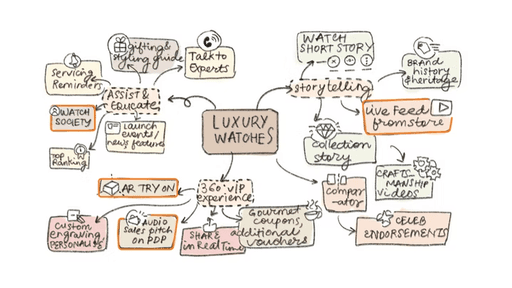 gifting &
styling guide
Talk to
Experts
Servicing
Reminders
ASSIST &
EDUCATE
WATCH
SOCIETY
Launch
events
news feature
Top
Ranking
LUXURY
WATCHES
WATCH
SHORT STORY
Storytelling
BRAND
history
&heritage
Live Feed
from store
Collection
story
CRAFTS
MANSHIP
videos
Compar
ator
CELEB
ENDORSEMENTS
AR TRY ON
360° VIP
experience
Custom
engraving,
AUDIO
Sales pitch
on PDP
SHARE
in Real Time
Gourmet
coupons,
additional
vouchers